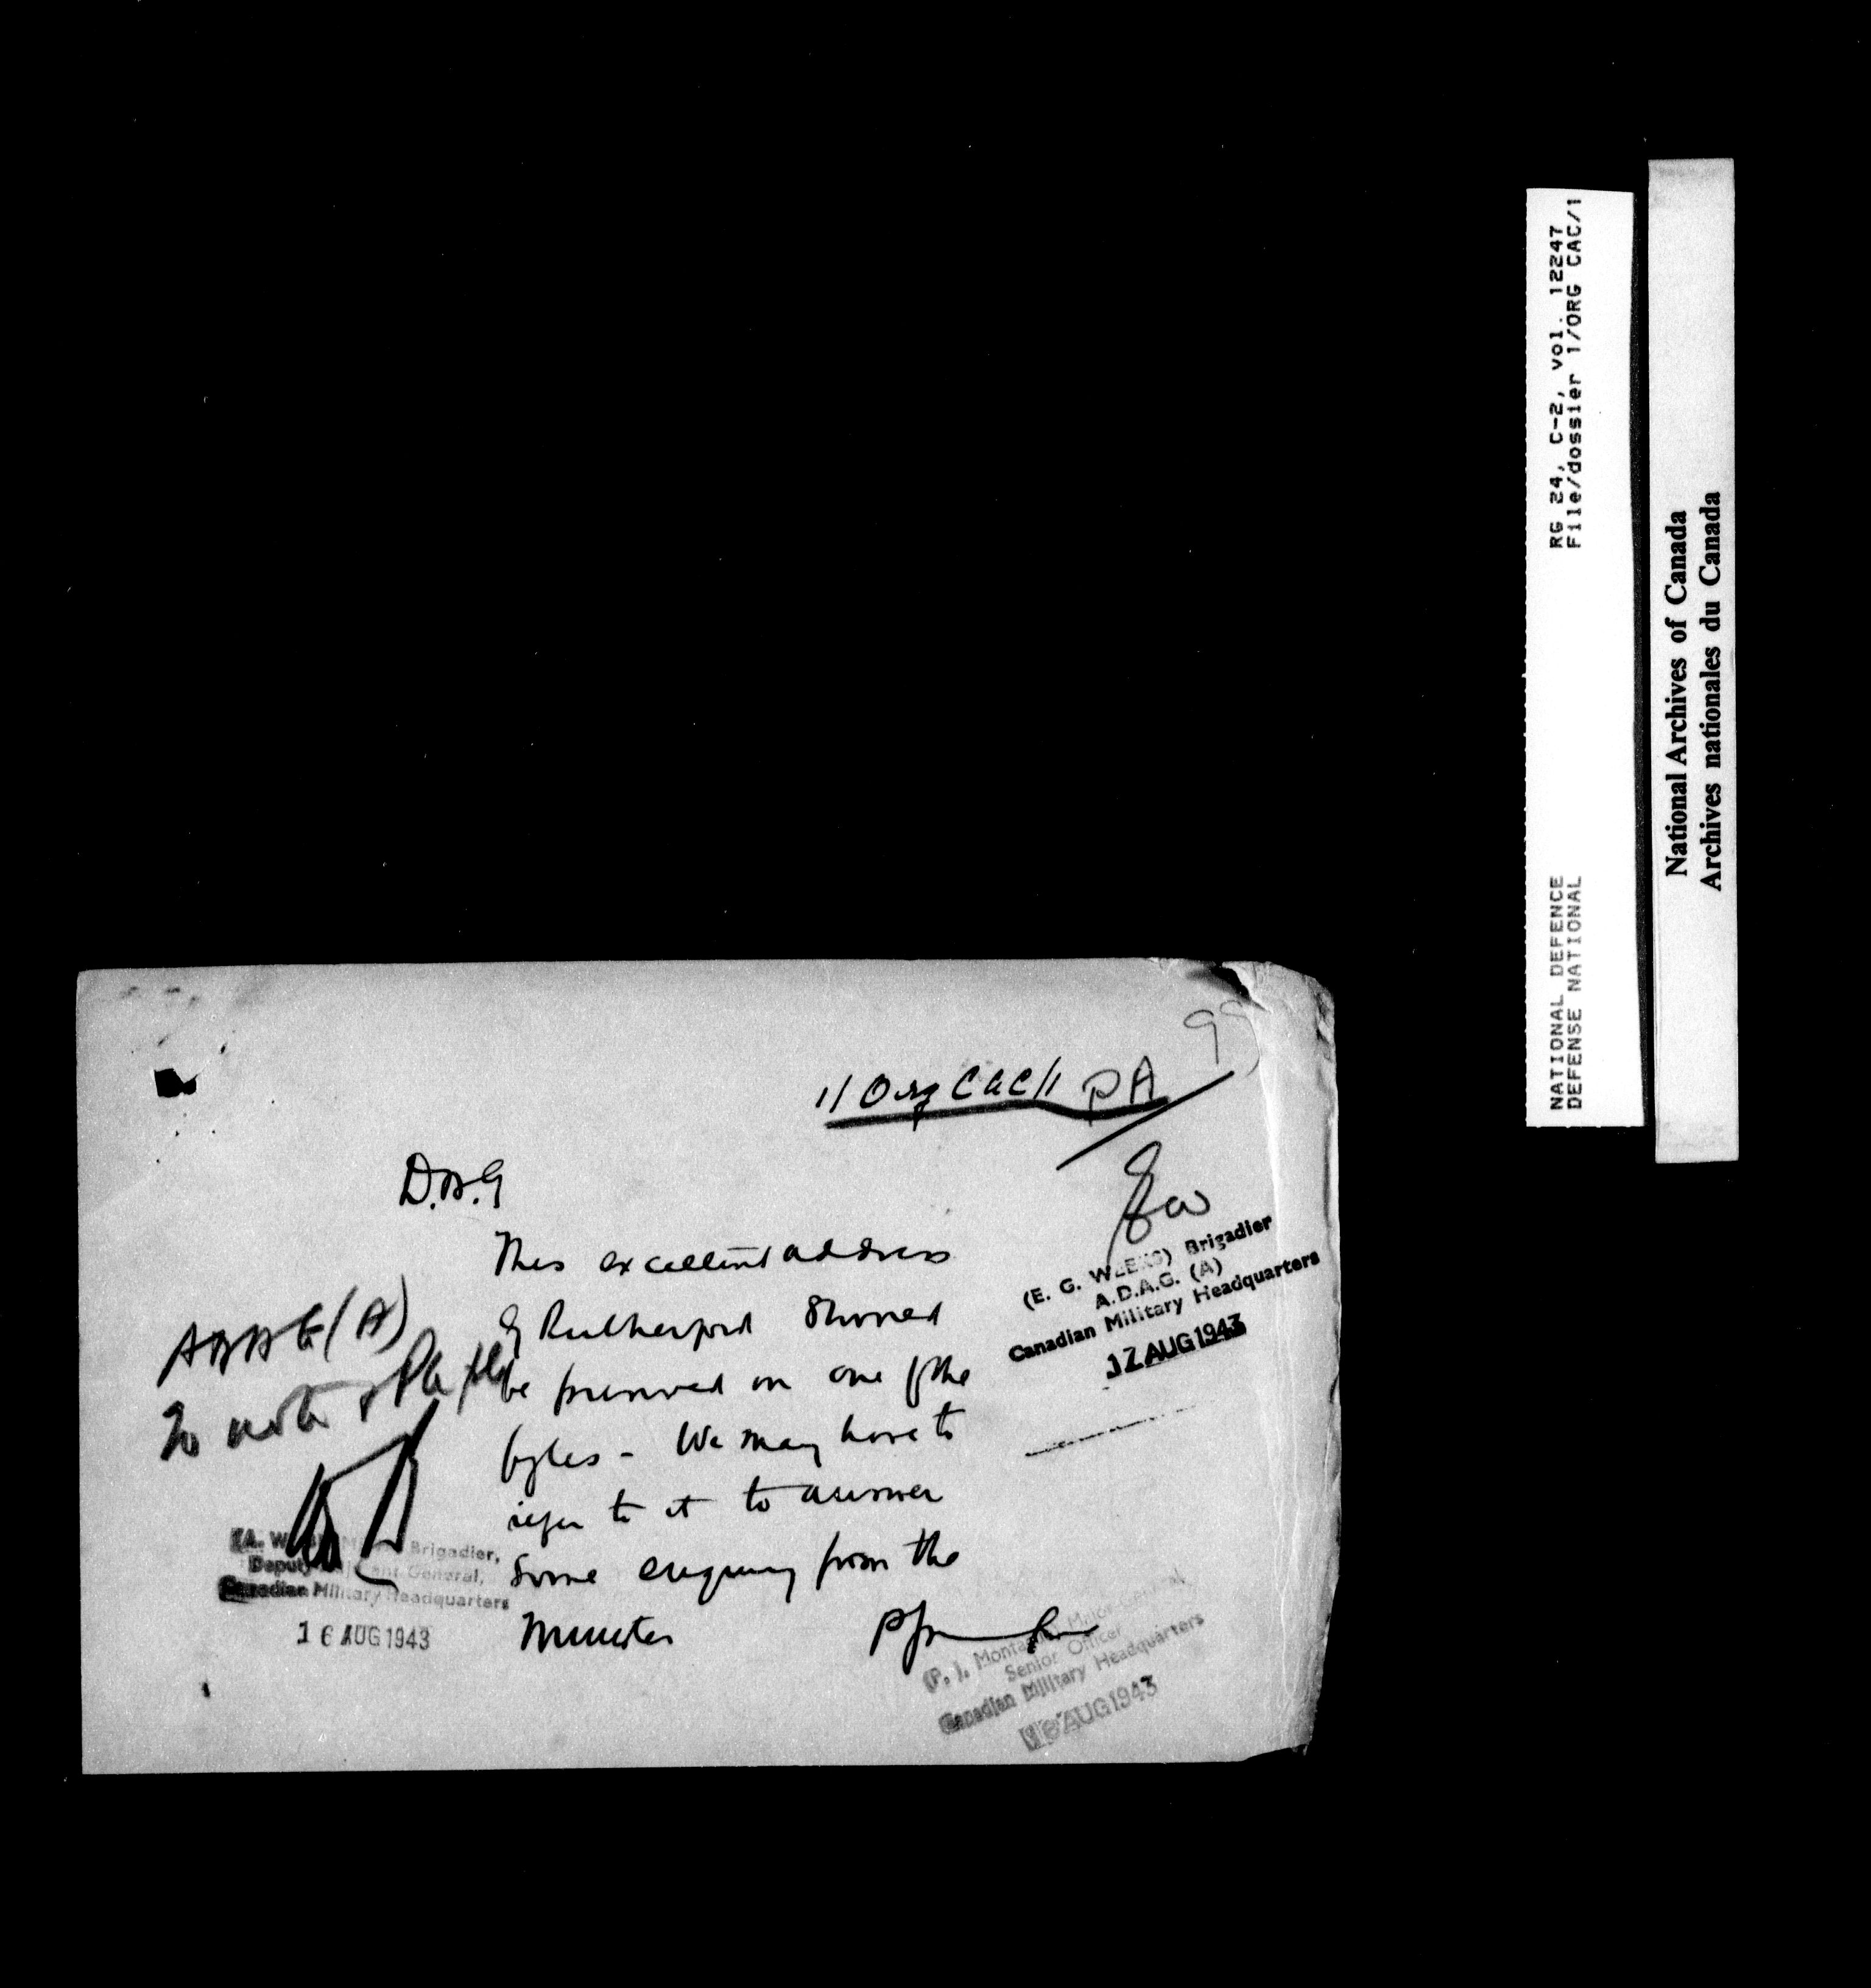 99
1/Org CAC/1 PA
D.A.G
This excellent address
by Rutherford should
be preserved on one of the
fyles - We may have to
refer to it to answer
some enquiry from the
Minister
(P. J. Montague) Major-General
Senior Officer
Canadian Military Headquarters
AUG 1943
ADAG (A)
To note &
Brigadier,
Deputy Adjutant General,
Canadian Military Headquarters
16 AUG 1943
(E. G. WEEKS) Brigadier
A.D.A.G. (A)
Canadian Military Headquarters
17 AUG 1943
NATIONAL DEFENCE RG 24, C-2, vol. 12247
DEFENSE NATIONAL File/dossier 1/ORG CAC/1
National Archives of Canada
Archives nationales du Canada